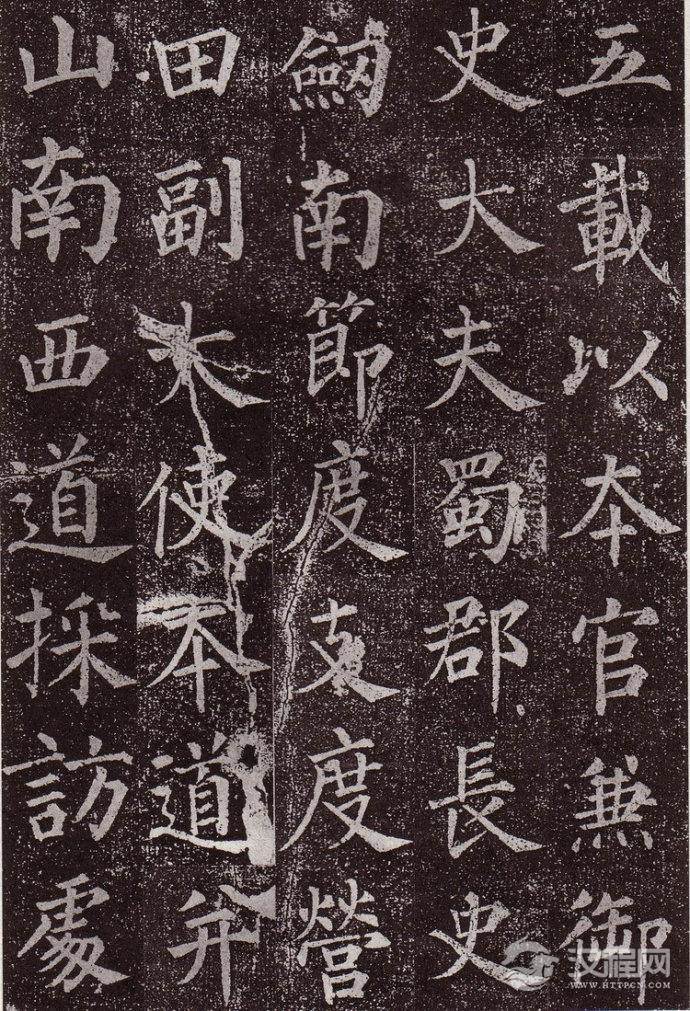 五載以本官兼御
史大夫蜀郡長史
劒南節度支度營
田副大使本道并
山南西道採訪處
汉程网
WWW.HTTPCN.COM